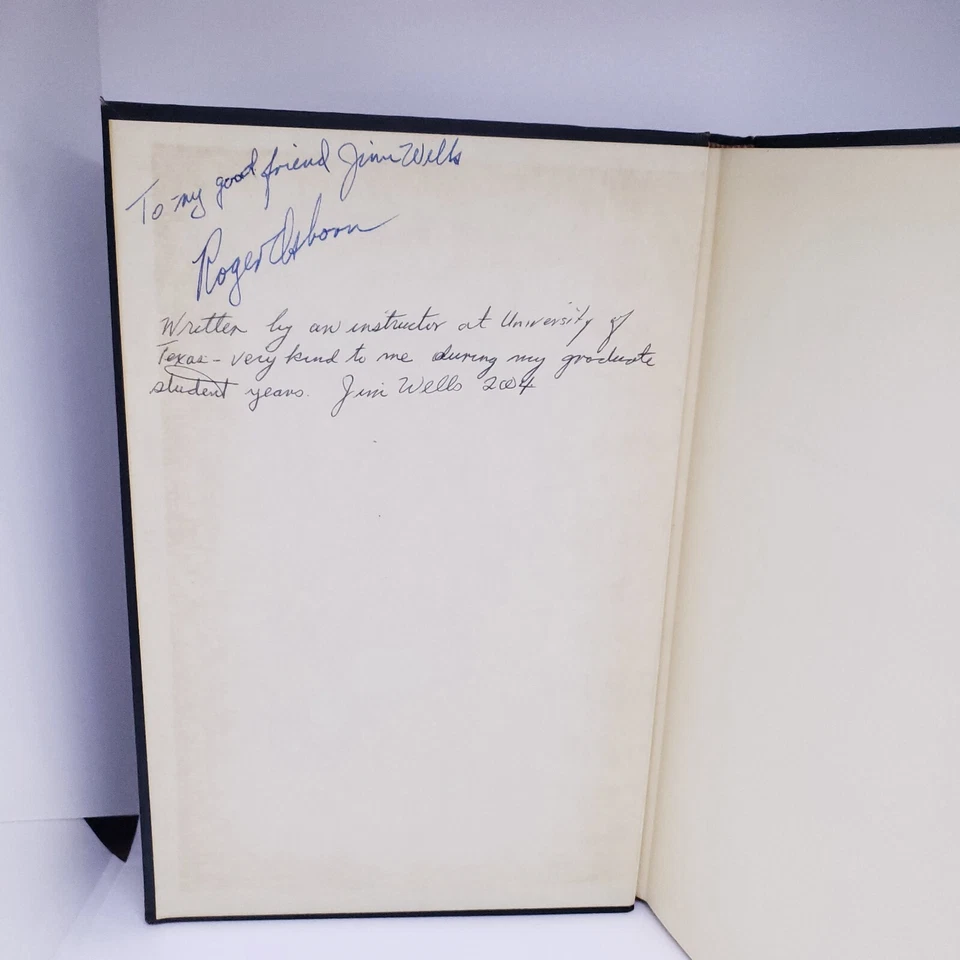 To my good friend Jim Wells
Roger Osborn
Written by an instructor at University of
Texas - very kind to me during my graduate
student years. Jim Wells 2004